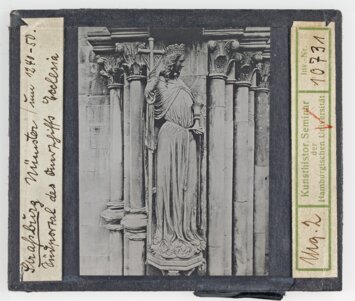 Straßburg Münster / um 1240-50.
Südportal des Querschiffs Ecclesia
Kunsthistor. Seminar
der
Hamburgischen Universität
Inv.-Nr.
10731